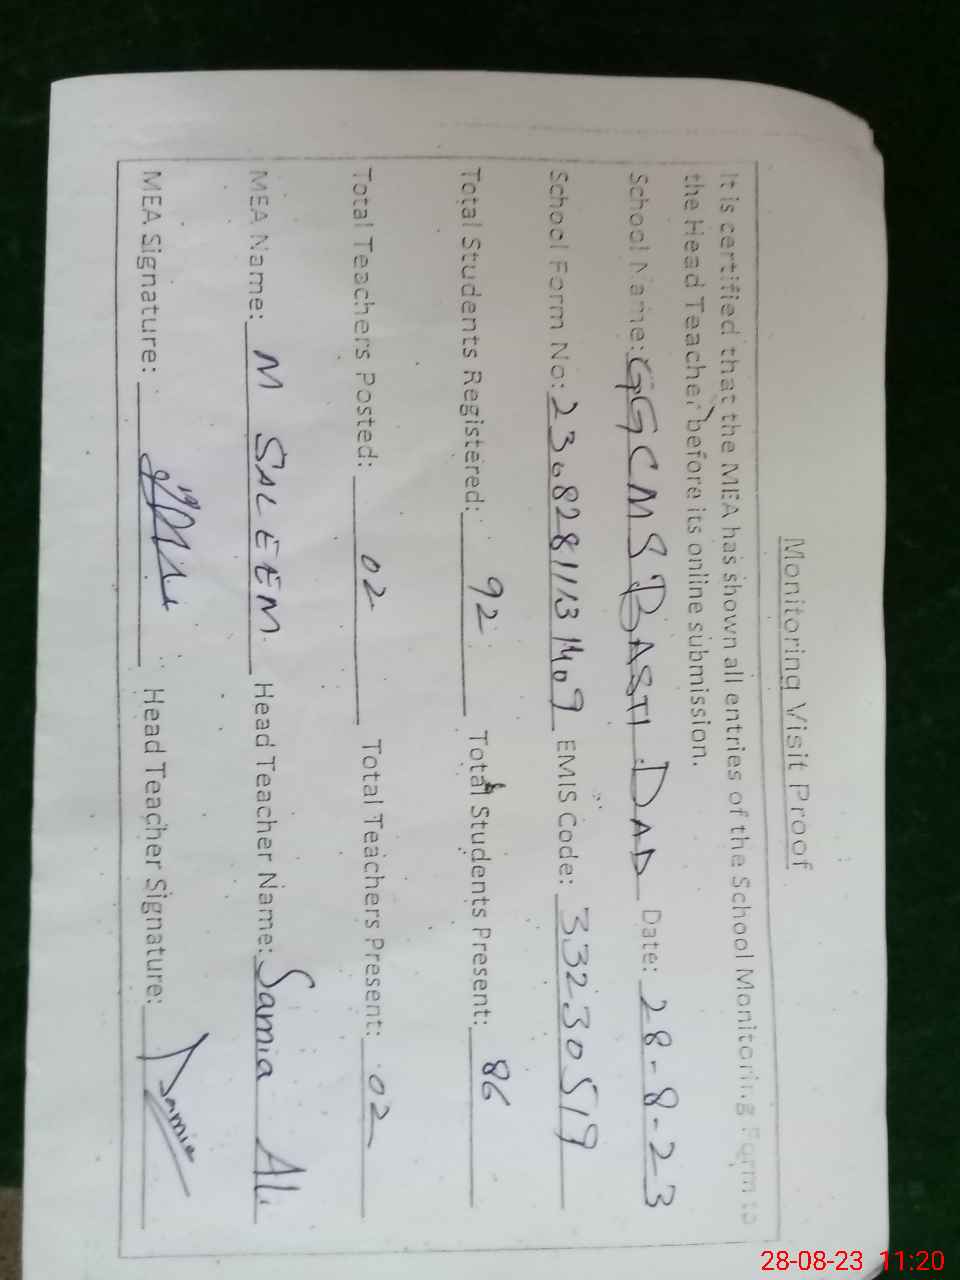 Monitoring Visit Proof
It is certified that the MEA has shown all entries of the School Monitoring Form to
the Head Teacher before its online submission.
School Name: GGCMS BASTI DAD Date: 28-8-23
School Form No: 23082811131409 EMIS Code: 33230519
Total Students Registered: 92 Total Students Present: 86
Total Teachers Posted: 02 Total Teachers Present: 02
MEA Name: M SALEEM Head Teacher Name: Samia Ali
MEA Signature: Head Teacher Signature: Samia
28-08-23 11:20